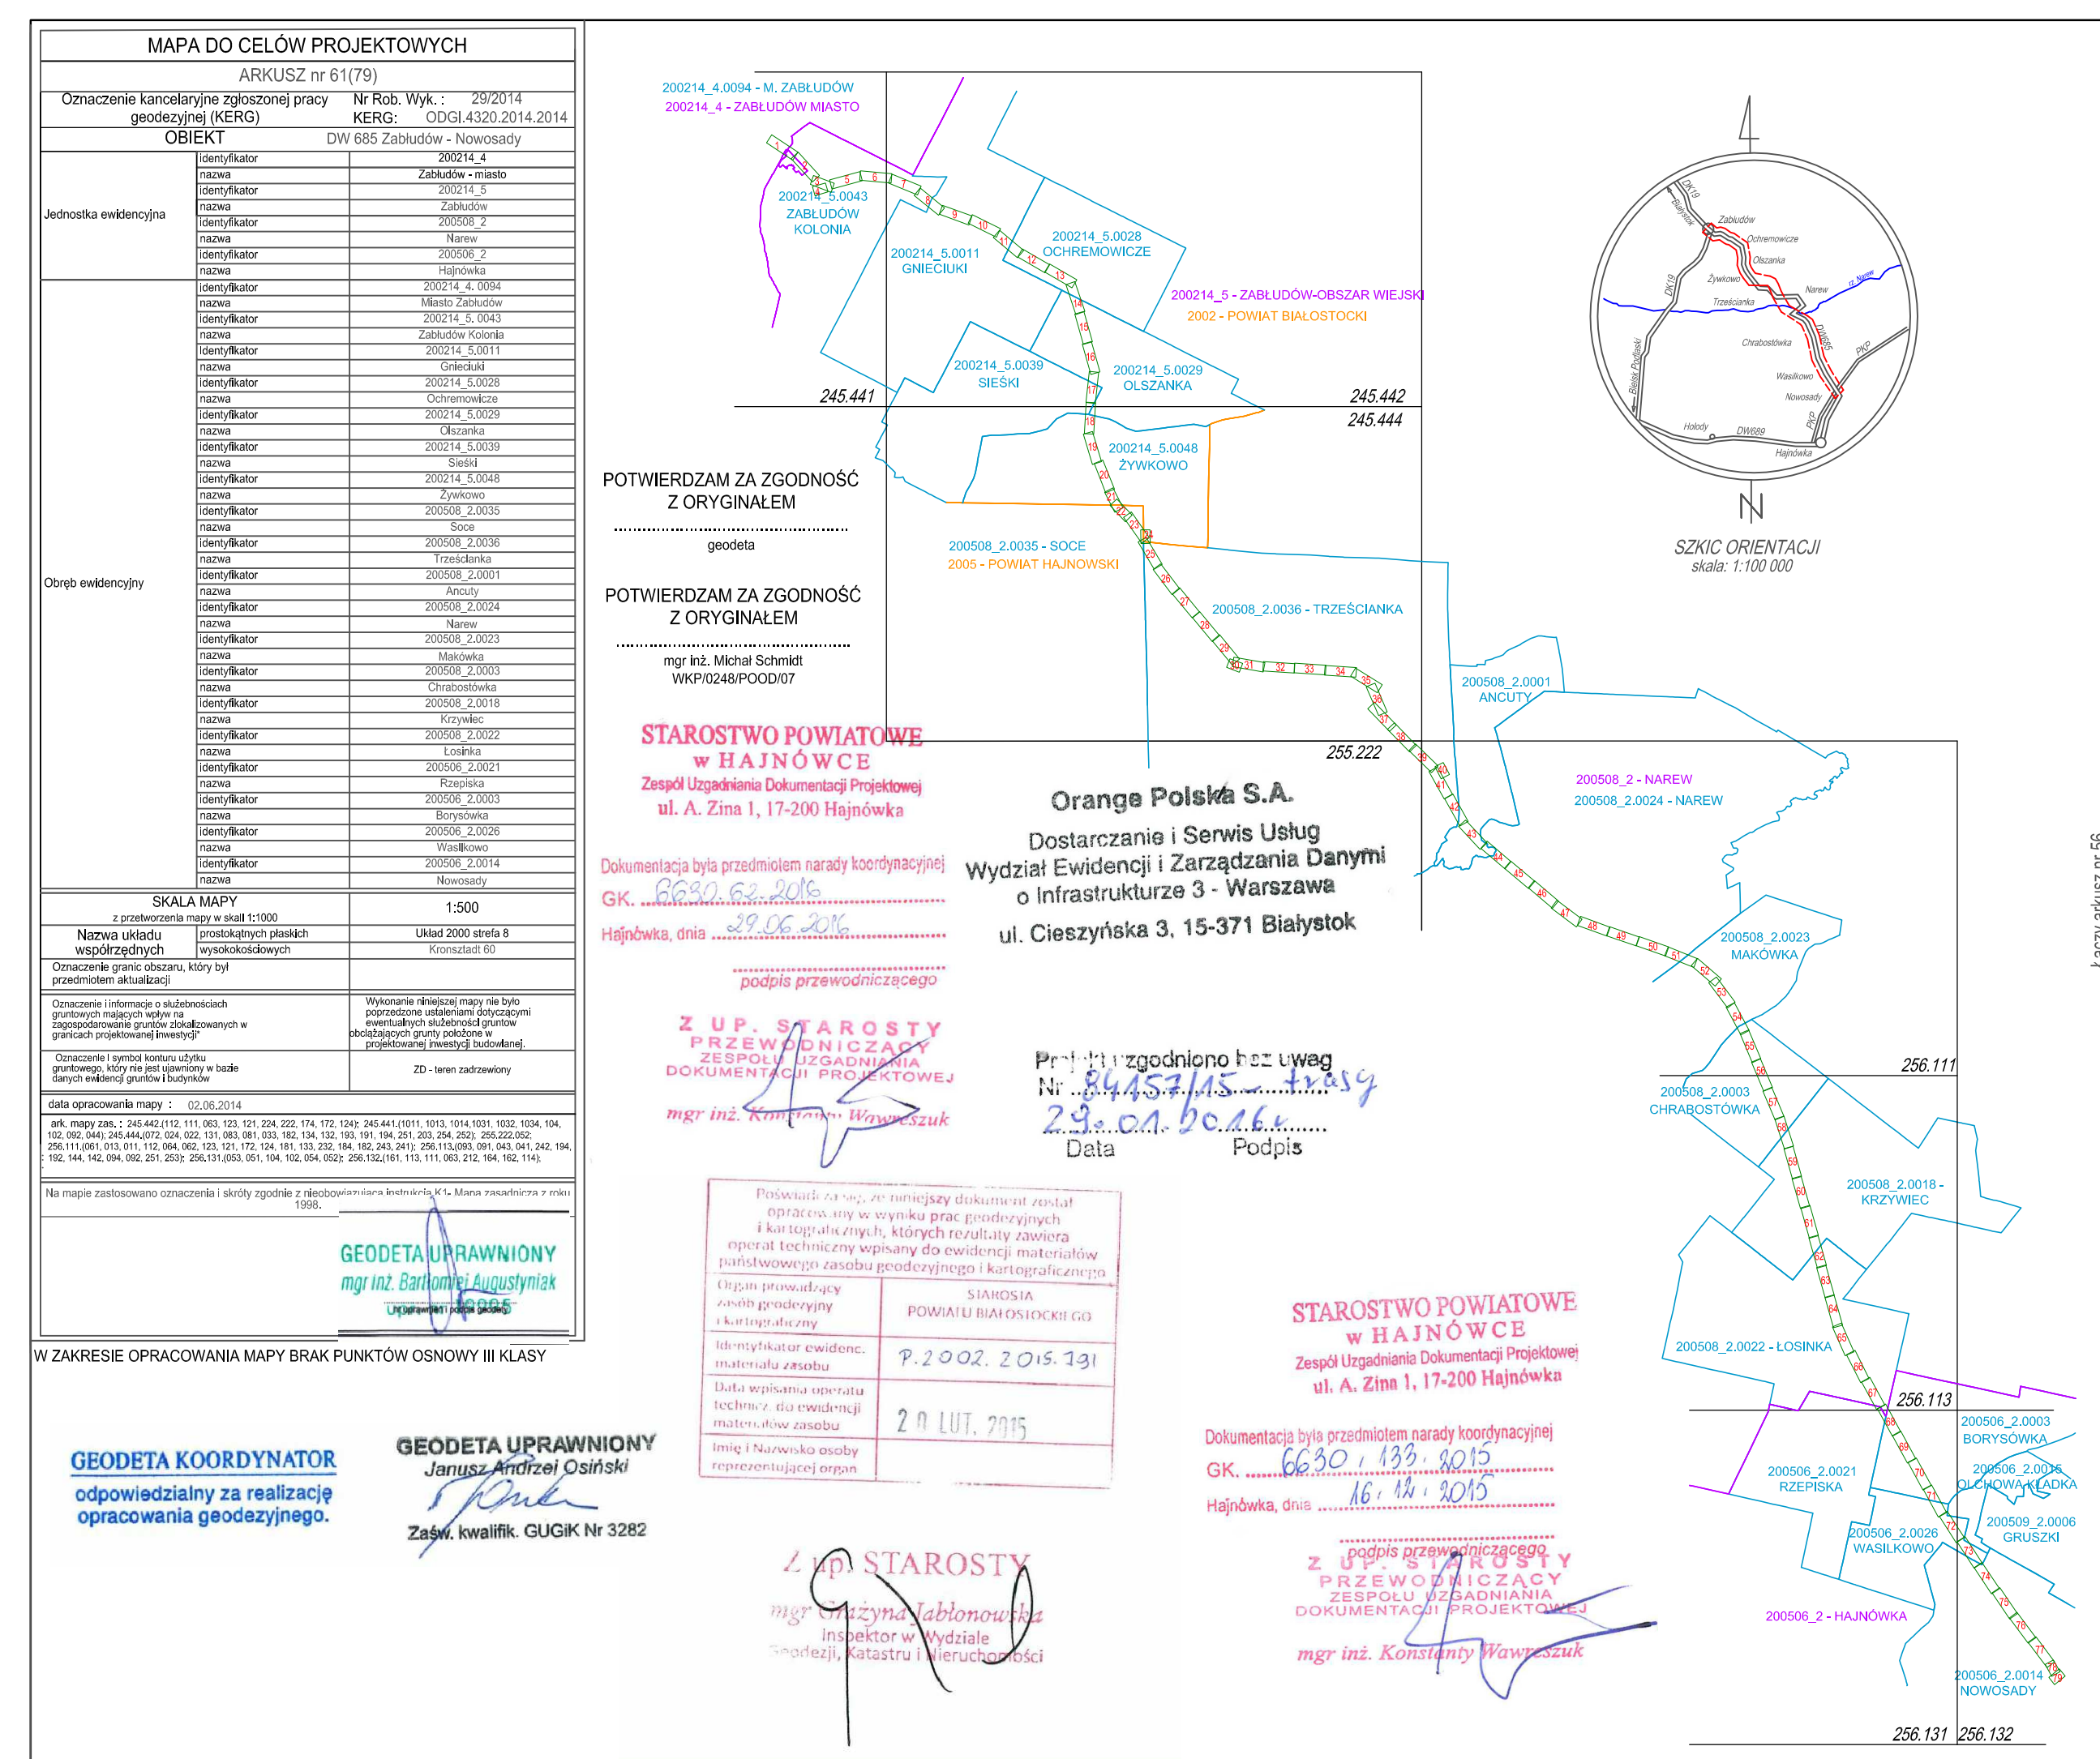 MAPA DO CELÓW PROJEKTOWYCH
ARKUSZ nr 61(79)
Oznaczenie kancelaryjne zgłoszonej pracy
geodezyjnej (KERG)
Nr Rob. Wyk. : 29/2014
KERG: ODGI.4320.2014.2014
OBIEKT DW 685 Zabłudów - Nowosady
Jednostka ewidencyjna
identyfikator 200214_4
nazwa Zabłudów - miasto
identyfikator 200214_5
nazwa Zabłudów
identyfikator 200508_2
nazwa Narew
identyfikator 200506_2
nazwa Hajnówka
Obręb ewidencyjny
identyfikator 200214_4. 0094
nazwa Miasto Zabłudów
identyfikator 200214_5. 0043
nazwa Zabłudów Kolonia
Identyfikator 200214_5.0011
nazwa Gnieciuki
identyfikator 200214_5.0028
nazwa Ochremowicze
identyfikator 200214_5.0029
nazwa Olszanka
identyfikator 200214_5.0039
nazwa Sieśki
identyfikator 200214_5.0048
nazwa Żywkowo
identyfikator 200508_2.0035
nazwa Soce
identyfikator 200508_2.0036
nazwa Trześcianka
identyfikator 200508_2.0001
nazwa Ancuty
identyfikator 200508_2.0024
nazwa Narew
identyfikator 200508_2.0023
nazwa Makówka
identyfikator 200508_2.0003
nazwa Chrabostówka
identyfikator 200508_2.0018
nazwa Krzywiec
identyfikator 200508_2.0022
nazwa Łosinka
identyfikator 200506_2.0021
nazwa Rzepiska
identyfikator 200506_2.0003
nazwa Borysówka
identyfikator 200506_2.0026
nazwa Wasilkowo
identyfikator 200506_2.0014
nazwa Nowosady
SKALA MAPY
z przetworzenia mapy w skali 1:1000
1:500
Nazwa układu
współrzędnych
prostokątnych płaskich Układ 2000 strefa 8
wysokokościowych Kronsztadt 60
Oznaczenie granic obszaru, który był
przedmiotem aktualizacji
Oznaczenie i informacje o służebnościach
gruntowych mających wpływ na
zagospodarowanie gruntów zlokalizowanych w
granicach projektowanej inwestycji*
Wykonanie niniejszej mapy nie było
poprzedzone ustaleniami dotyczącymi
ewentualnych służebności gruntów
obciążających grunty położone w
projektowanej inwestycji budowlanej.
Oznaczenie i symbol konturu użytku
gruntowego, który nie jest ujawniony w bazie
danych ewidencji gruntów i budynków
ZD - teren zadrzewiony
data opracowania mapy : 02.06.2014
ark. mapy zas. : 245.442.(112, 111, 063, 123, 121, 224, 222, 174, 172, 124); 245.441.(1011, 1013, 1014,1031, 1032, 1034, 104,
102, 092, 044); 245.444.(072, 024, 022, 131, 083, 081, 033, 182, 134, 132, 193, 191, 194, 251, 203, 254, 252); 255.222.052;
256.111.(061, 013, 011, 112, 064, 062, 123, 121, 172, 124, 181, 133, 232, 184, 182, 243, 241); 256.113.(093, 091, 043, 041, 242, 194,
192, 144, 142, 094, 092, 251, 253); 256.131.(053, 051, 104, 102, 054, 052); 256.132.(161, 113, 111, 063, 212, 164, 162, 114);
Na mapie zastosowano oznaczenia i skróty zgodnie z nieobowiązującą instrukcją K1- Mapa zasadnicza z roku
1998.
GEODETA UPRAWNIONY
mgr inż. Bartłomiej Augustyniak
nr uprawnień i podpis geodety
W ZAKRESIE OPRACOWANIA MAPY BRAK PUNKTÓW OSNOWY III KLASY
GEODETA KOORDYNATOR
odpowiedzialny za realizację
opracowania geodezyjnego.
GEODETA UPRAWNIONY
Janusz Andrzej Osiński
Zaśw. kwalifik. GUGiK Nr 3282
POTWIERDZAM ZA ZGODNOŚĆ
Z ORYGINAŁEM
geodeta
POTWIERDZAM ZA ZGODNOŚĆ
Z ORYGINAŁEM
mgr inż. Michał Schmidt
WKP/0248/POOD/07
STAROSTWO POWIATOWE
w HAJNÓWCE
Zespół Uzgadniania Dokumentacji Projektowej
ul. A. Zina 1, 17-200 Hajnówka
Dokumentacja była przedmiotem narady koordynacyjnej
GK. 6630.62.2016
Hajnówka, dnia 29.06.2016
podpis przewodniczącego
Z UP. STAROSTY
PRZEWODNICZĄCY
ZESPOŁU UZGADNIANIA
DOKUMENTACJI PROJEKTOWEJ
mgr inż. Konstanty Wawreszuk
Orange Polska S.A.
Dostarczanie i Serwis Usług
Wydział Ewidencji i Zarządzania Danymi
o Infrastrukturze 3 - Warszawa
ul. Cieszyńska 3, 15-371 Białystok
Projekt uzgodniono bez uwag
Nr 84157/15 - trasy
29.01.2016r
Data Podpis
Poświadcza się, że niniejszy dokument został
opracowany w wyniku prac geodezyjnych
i kartograficznych, których rezultaty zawiera
operat techniczny wpisany do ewidencji materiałów
państwowego zasobu geodezyjnego i kartograficznego
Organ prowadzący
zasób geodezyjny
i kartograficzny
STAROSTA
POWIATU BIAŁOSTOCKIEGO
Identyfikator ewidenc.
materiału zasobu
P.2002.2015.791
Data wpisania operatu
technicz. do ewidencji
materiałów zasobu
20 LUT. 2015
Imię i Nazwisko osoby
reprezentującej organ
Z up. STAROSTY
mgr Grażyna Jabłonowska
Inspektor w Wydziale
Geodezji, Katastru i Nieruchomości
STAROSTWO POWIATOWE
w HAJNÓWCE
Zespół Uzgadniania Dokumentacji Projektowej
ul. A. Zina 1, 17-200 Hajnówka
Dokumentacja była przedmiotem narady koordynacyjnej
GK. 6630.133.2015
Hajnówka, dnia 16.12.2015
podpis przewodniczącego
Z UP. STAROSTY
PRZEWODNICZĄCY
ZESPOŁU UZGADNIANIA
DOKUMENTACJI PROJEKTOWEJ
mgr inż. Konstanty Wawreszuk
200214_4.0094 - M. ZABŁUDÓW
200214_4 - ZABŁUDÓW MIASTO
200214_5.0043
ZABŁUDÓW
KOLONIA
200214_5.0011
GNIECIUKI
200214_5.0028
OCHREMOWICZE
200214_5 - ZABŁUDÓW-OBSZAR WIEJSKI
2002 - POWIAT BIAŁOSTOCKI
200214_5.0039
SIEŚKI
200214_5.0029
OLSZANKA
245.441
245.442
245.444
200214_5.0048
ŻYWKOWO
200508_2.0035 - SOCE
2005 - POWIAT HAJNOWSKI
200508_2.0036 - TRZEŚCIANKA
200508_2.0001
ANCUTY
255.222
200508_2 - NAREW
200508_2.0024 - NAREW
200508_2.0023
MAKÓWKA
256.111
200508_2.0003
CHRABOSTÓWKA
200508_2.0018 -
KRZYWIEC
200508_2.0022 - ŁOSINKA
256.113
200506_2.0003
BORYSÓWKA
200506_2.0021
RZEPISKA
200506_2.0015
OLCHOWA KŁADKA
200506_2.0026
WASILKOWO
200509_2.0006
GRUSZKI
200506_2 - HAJNÓWKA
200506_2.0014
NOWOSADY
256.131 256.132
1
2
3
4
5
6
7
8
9
10
11
12
13
14
15
16
17
18
19
20
21
22
23
24
25
26
27
28
29
30
31
32
33
34
35
36
37
38
39
40
41
42
43
44
45
46
47
48
49
50
51
52
53
54
55
56
57
58
59
60
61
62
63
64
65
66
67
68
69
70
71
72
73
74
75
76
77
78
79
DK19
Białystok
Zabłudów
Ochremowicze
Olszanka
Żywkowo
Narew
rz. Narew
DK19
Trześcianka
DW685
Chrabostówka
PKP
Bielsk Podlaski
Wasilkowo
Nowosady
Hołody
DW689
PKP
Hajnówka
N
SZKIC ORIENTACJI
skala: 1:100 000
Łączy arkusz nr 56